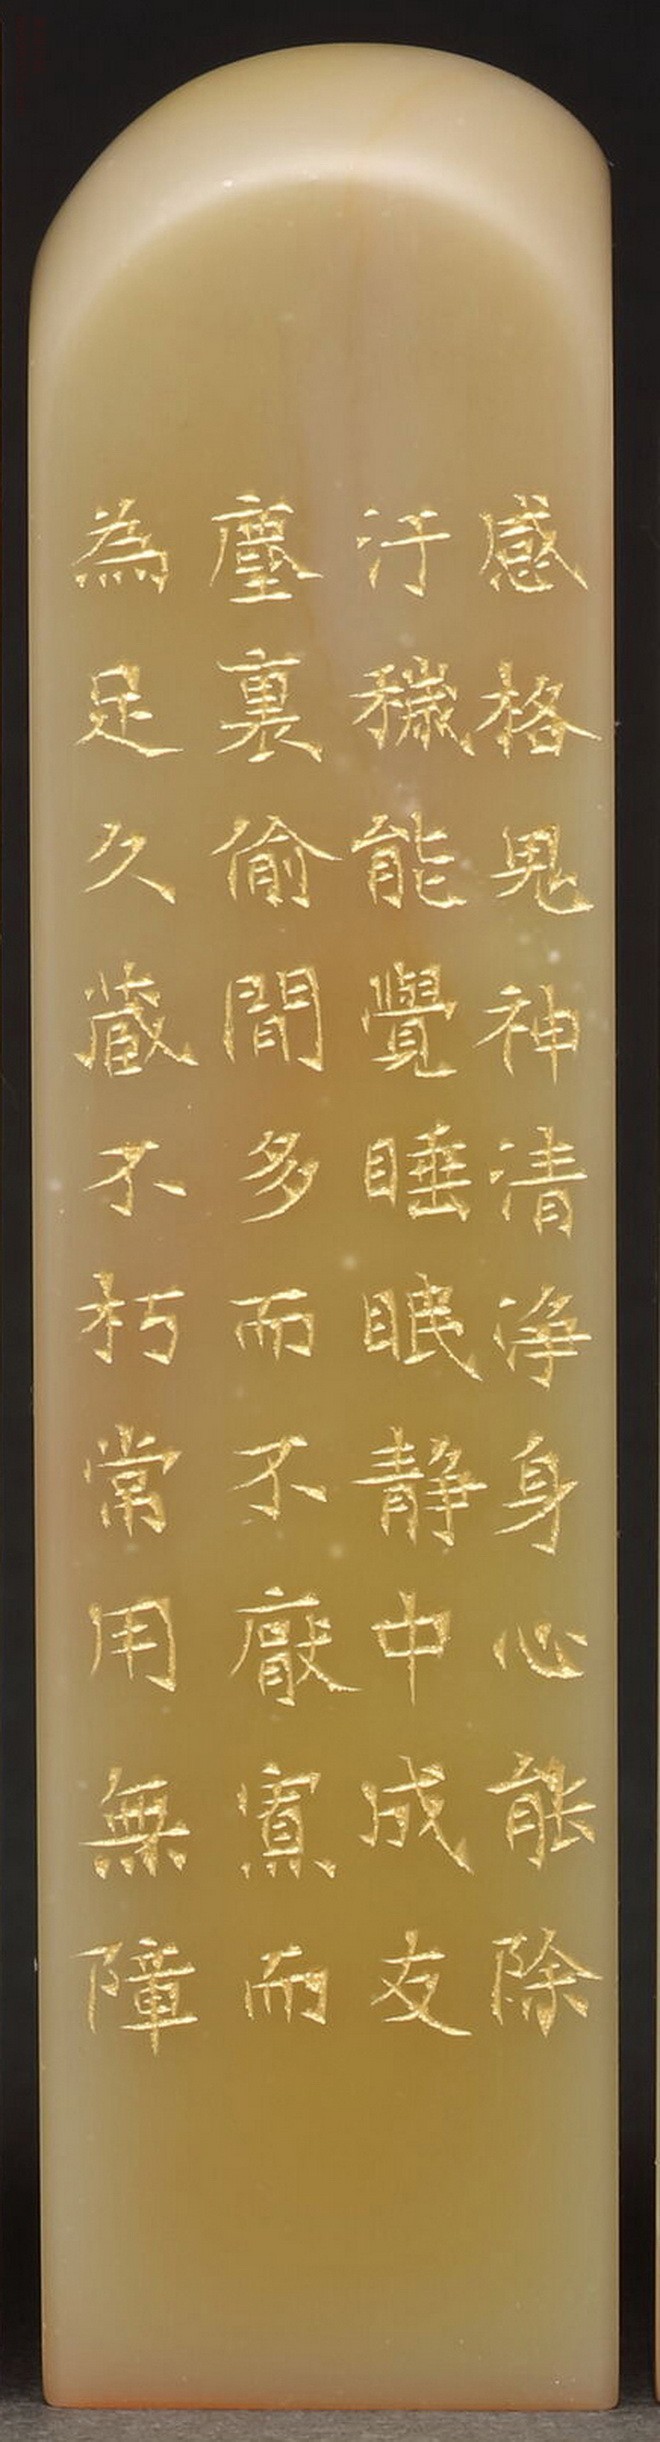 感格鬼神清净身心能除
汙穢能覺睡眠静中成友
塵裏偷閒多而不厭寡而
為足久蔵不朽常用無障